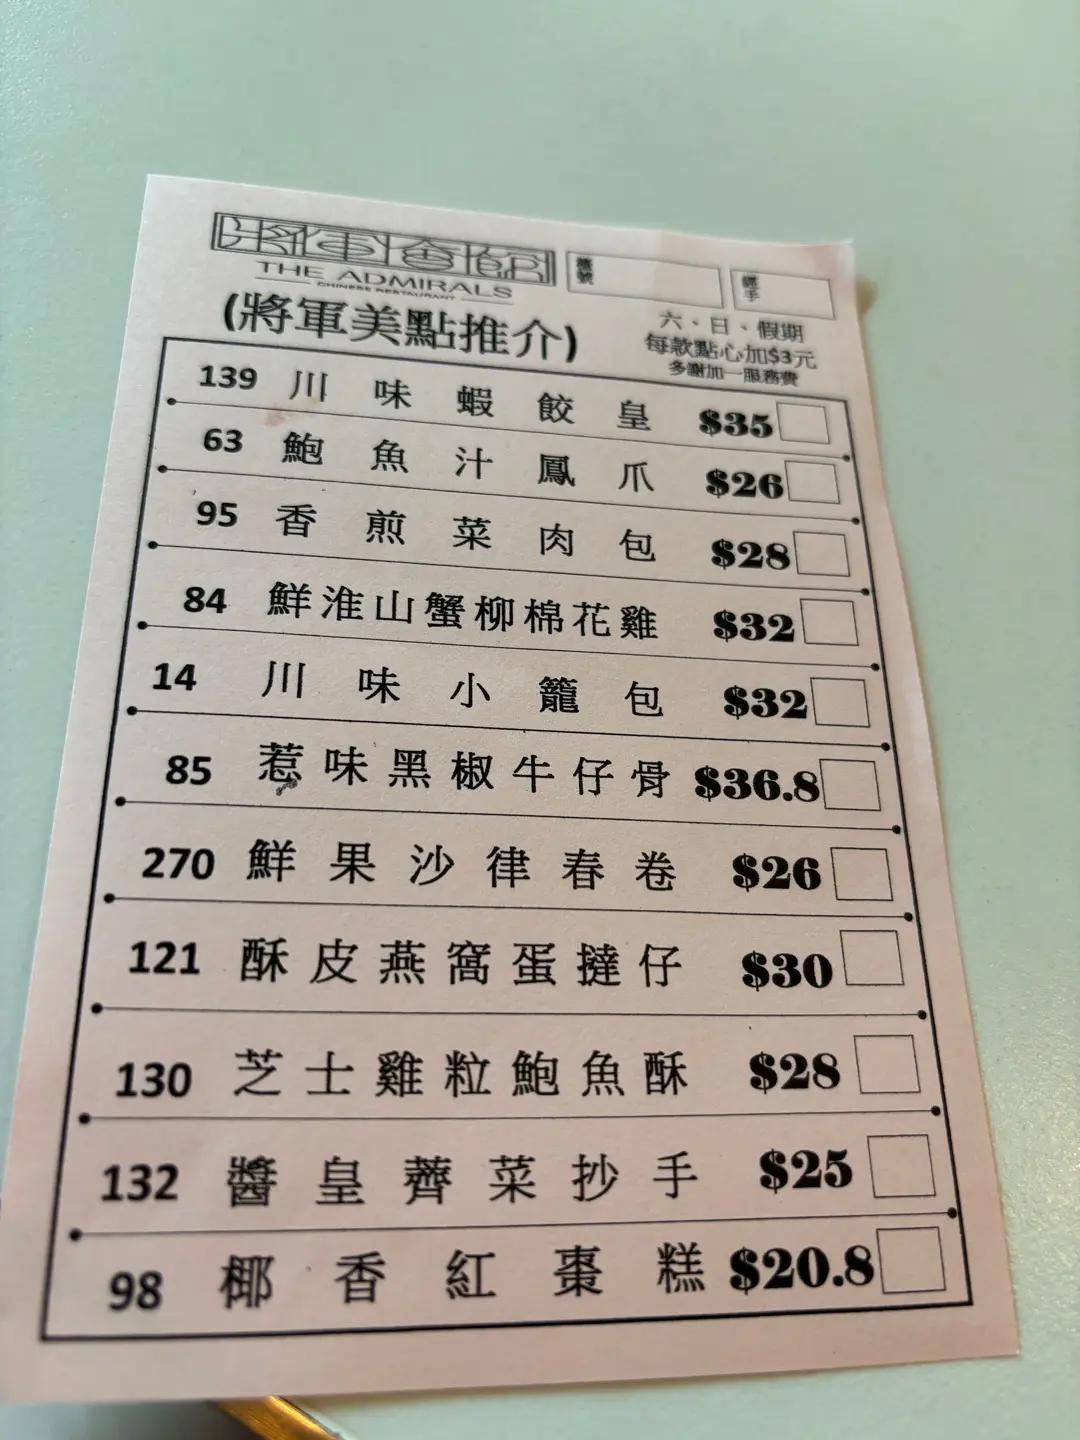 將軍會館
THE ADMIRALS
CHINESE RESTAURANT
檯號
經手
(將軍美點推介)
六、日、假期
每款點心加$3元
多謝加一服務費
139 川味蝦餃皇 $35
63 鮑魚汁鳳爪 $26
95 香煎菜肉包 $28
84 鮮淮山蟹柳棉花雞 $32
14 川味小籠包 $32
85 惹味黑椒牛仔骨 $36.8
270 鮮果沙律春卷 $26
121 酥皮燕窩蛋撻仔 $30
130 芝士雞粒鮑魚酥 $28
132 醬皇薺菜抄手 $25
98 椰香紅棗糕 $20.8